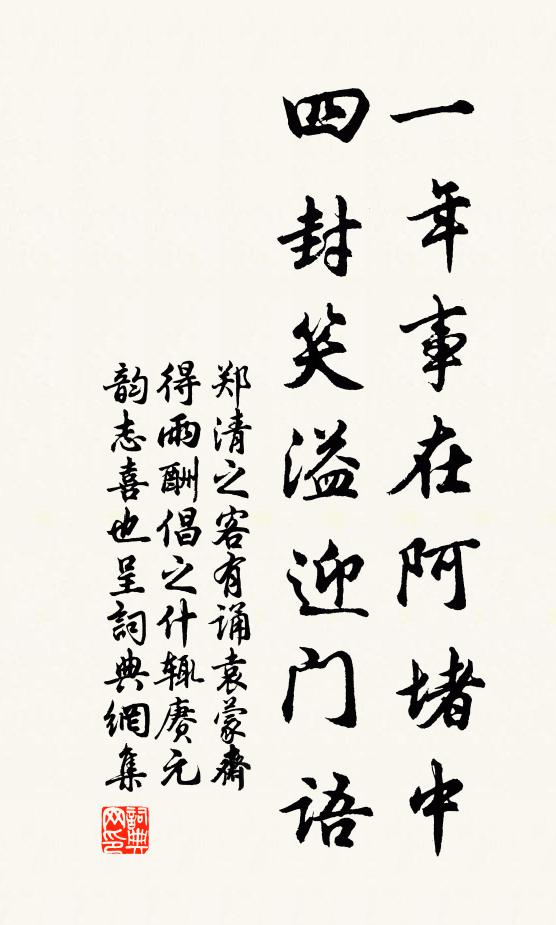 一年事在阿堵中
四封笑溢迎门语
郑清之客有诵袁蒙斋
得雨酬倡之什辄赓元
韵志喜也呈詞典網集
詞典
网印